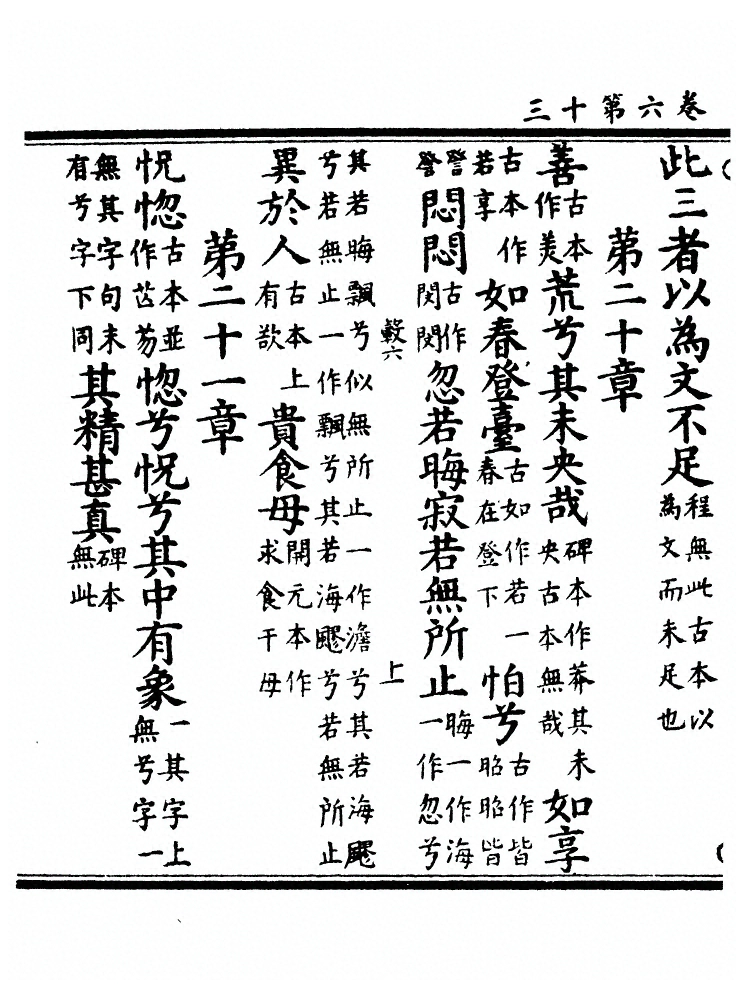 卷六第十三
此三者以為文不足程無此古本以為文而未足也
第二十章
善古本作美荒兮其未央哉碑本作莽其未央古本無哉如享
古本作若享如春登臺古如作若一春在登下怕兮古作皆昭昭皆
詧詧悶悶古作閔閔忽若晦寂若無所止晦一作海一作忽兮
籔六 上
其若晦飄兮似無所止一作澹兮其若海飂兮若無止一作飄兮其若海飂兮若無所止
異於人古本上有欲貴食母開元本作求食于母
第二十一章
怳惚古本並作芒芴惚兮怳兮其中有象一其字上無兮字一
無其字句末有兮字下同其精甚真碑本無此